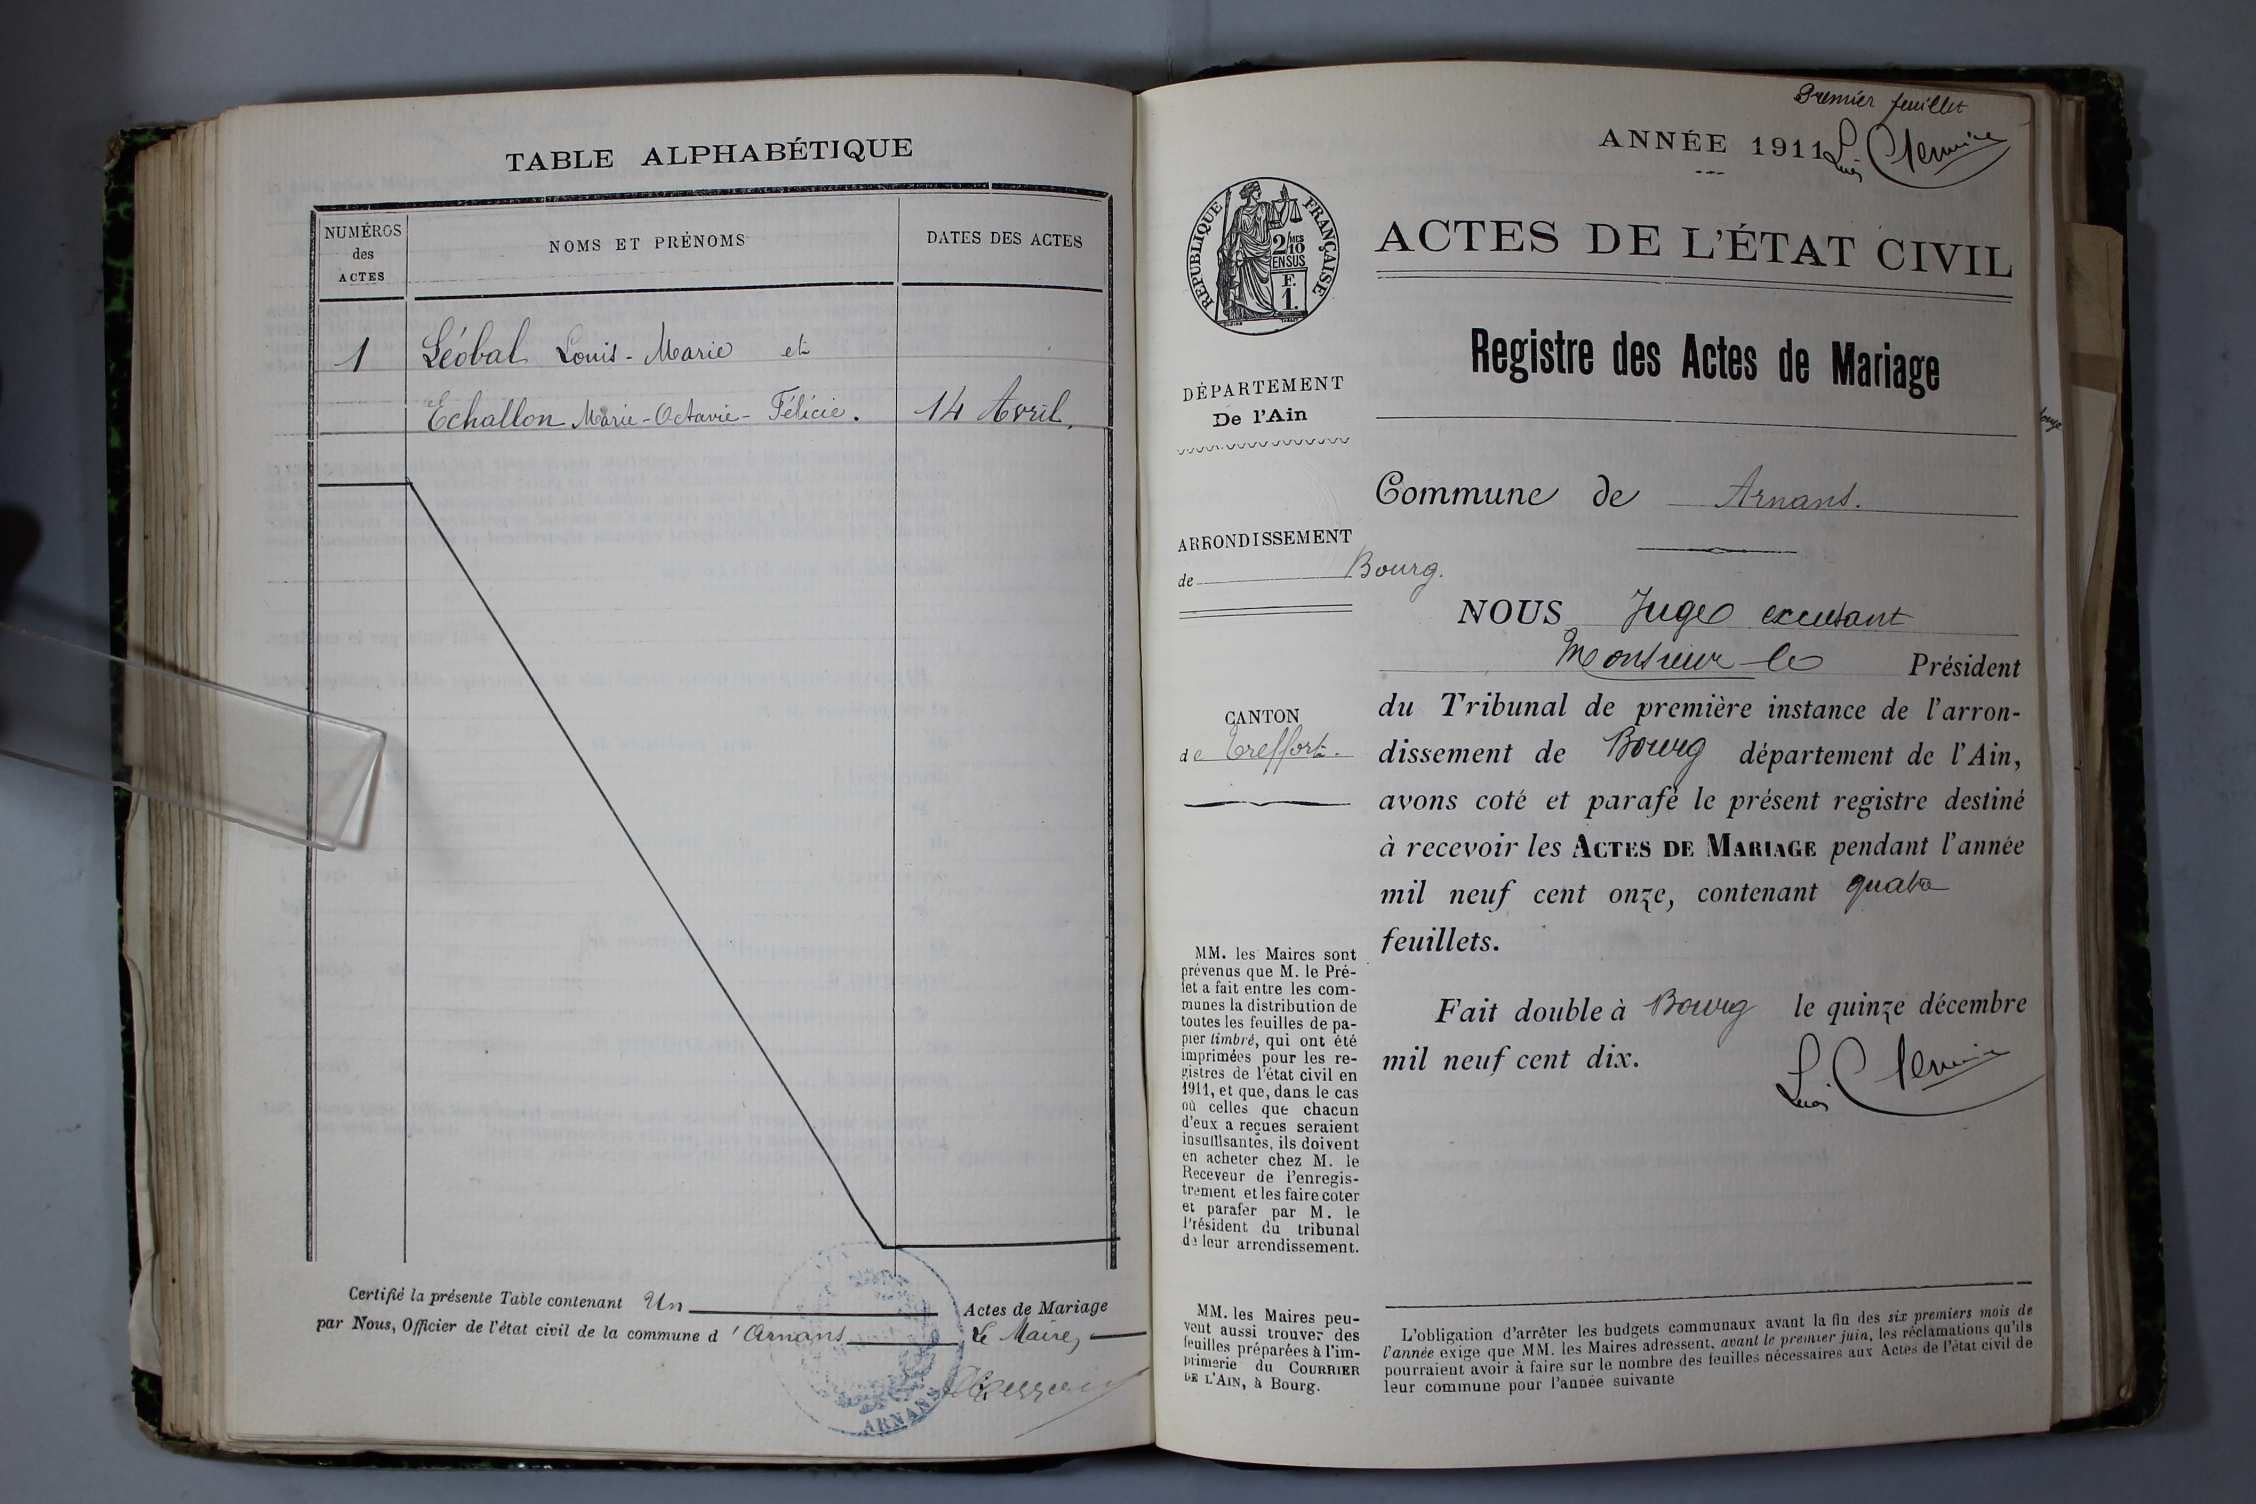 TABLE ALPHABÉTIQUE
NUMÉROS
des
ACTES
NOMS ET PRÉNOMS
DATES DES ACTES
1
Léobal Louis-Marie et
Echallon Marie-Octavie-Félicie.
14 Avril.
Certifié la présente Table contenant Un Actes de Mariage
par Nous, Officier de l'état civil de la commune d'Arnans Le Maire,
ARNANS
Premier feuillet
ANNÉE 1911
RÉPUBLIQUE FRANÇAISE
2/10MES
EN SUS
F.
1.
ACTES DE L'ÉTAT CIVIL
Registre des Actes de Mariage
DÉPARTEMENT
De l'Ain
Commune de Arnans.
ARRONDISSEMENT
de Bourg.
CANTON
de Treffort.
NOUS Juge excusant
Monsieur le Président
du Tribunal de première instance de l'arron-
dissement de Bourg département de l'Ain,
avons coté et parafé le présent registre destiné
à recevoir les ACTES DE MARIAGE pendant l'année
mil neuf cent onze, contenant quatre
feuillets.
Fait double à Bourg le quinze décembre
mil neuf cent dix.
MM. les Maires sont
prévenus que M. le Pré-
fet a fait entre les com-
munes la distribution de
toutes les feuilles de pa-
pier timbré, qui ont été
imprimées pour les re-
gistres de l'état civil en
1911, et que, dans le cas
où celles que chacun
d'eux a reçues seraient
insuffisantes, ils doivent
en acheter chez M. le
Receveur de l'enregis-
trement et les faire coter
et parafer par M. le
Président du tribunal
de leur arrondissement.
MM. les Maires peu-
vent aussi trouver des
feuilles préparées à l'im-
primerie du COURRIER
DE L'AIN, à Bourg.
L'obligation d'arrêter les budgets communaux avant la fin des six premiers mois de
l'année exige que MM. les Maires adressent, avant le premier juin, les réclamations qu'ils
pourraient avoir à faire sur le nombre des feuilles nécessaires aux Actes de l'état civil de
leur commune pour l'année suivante